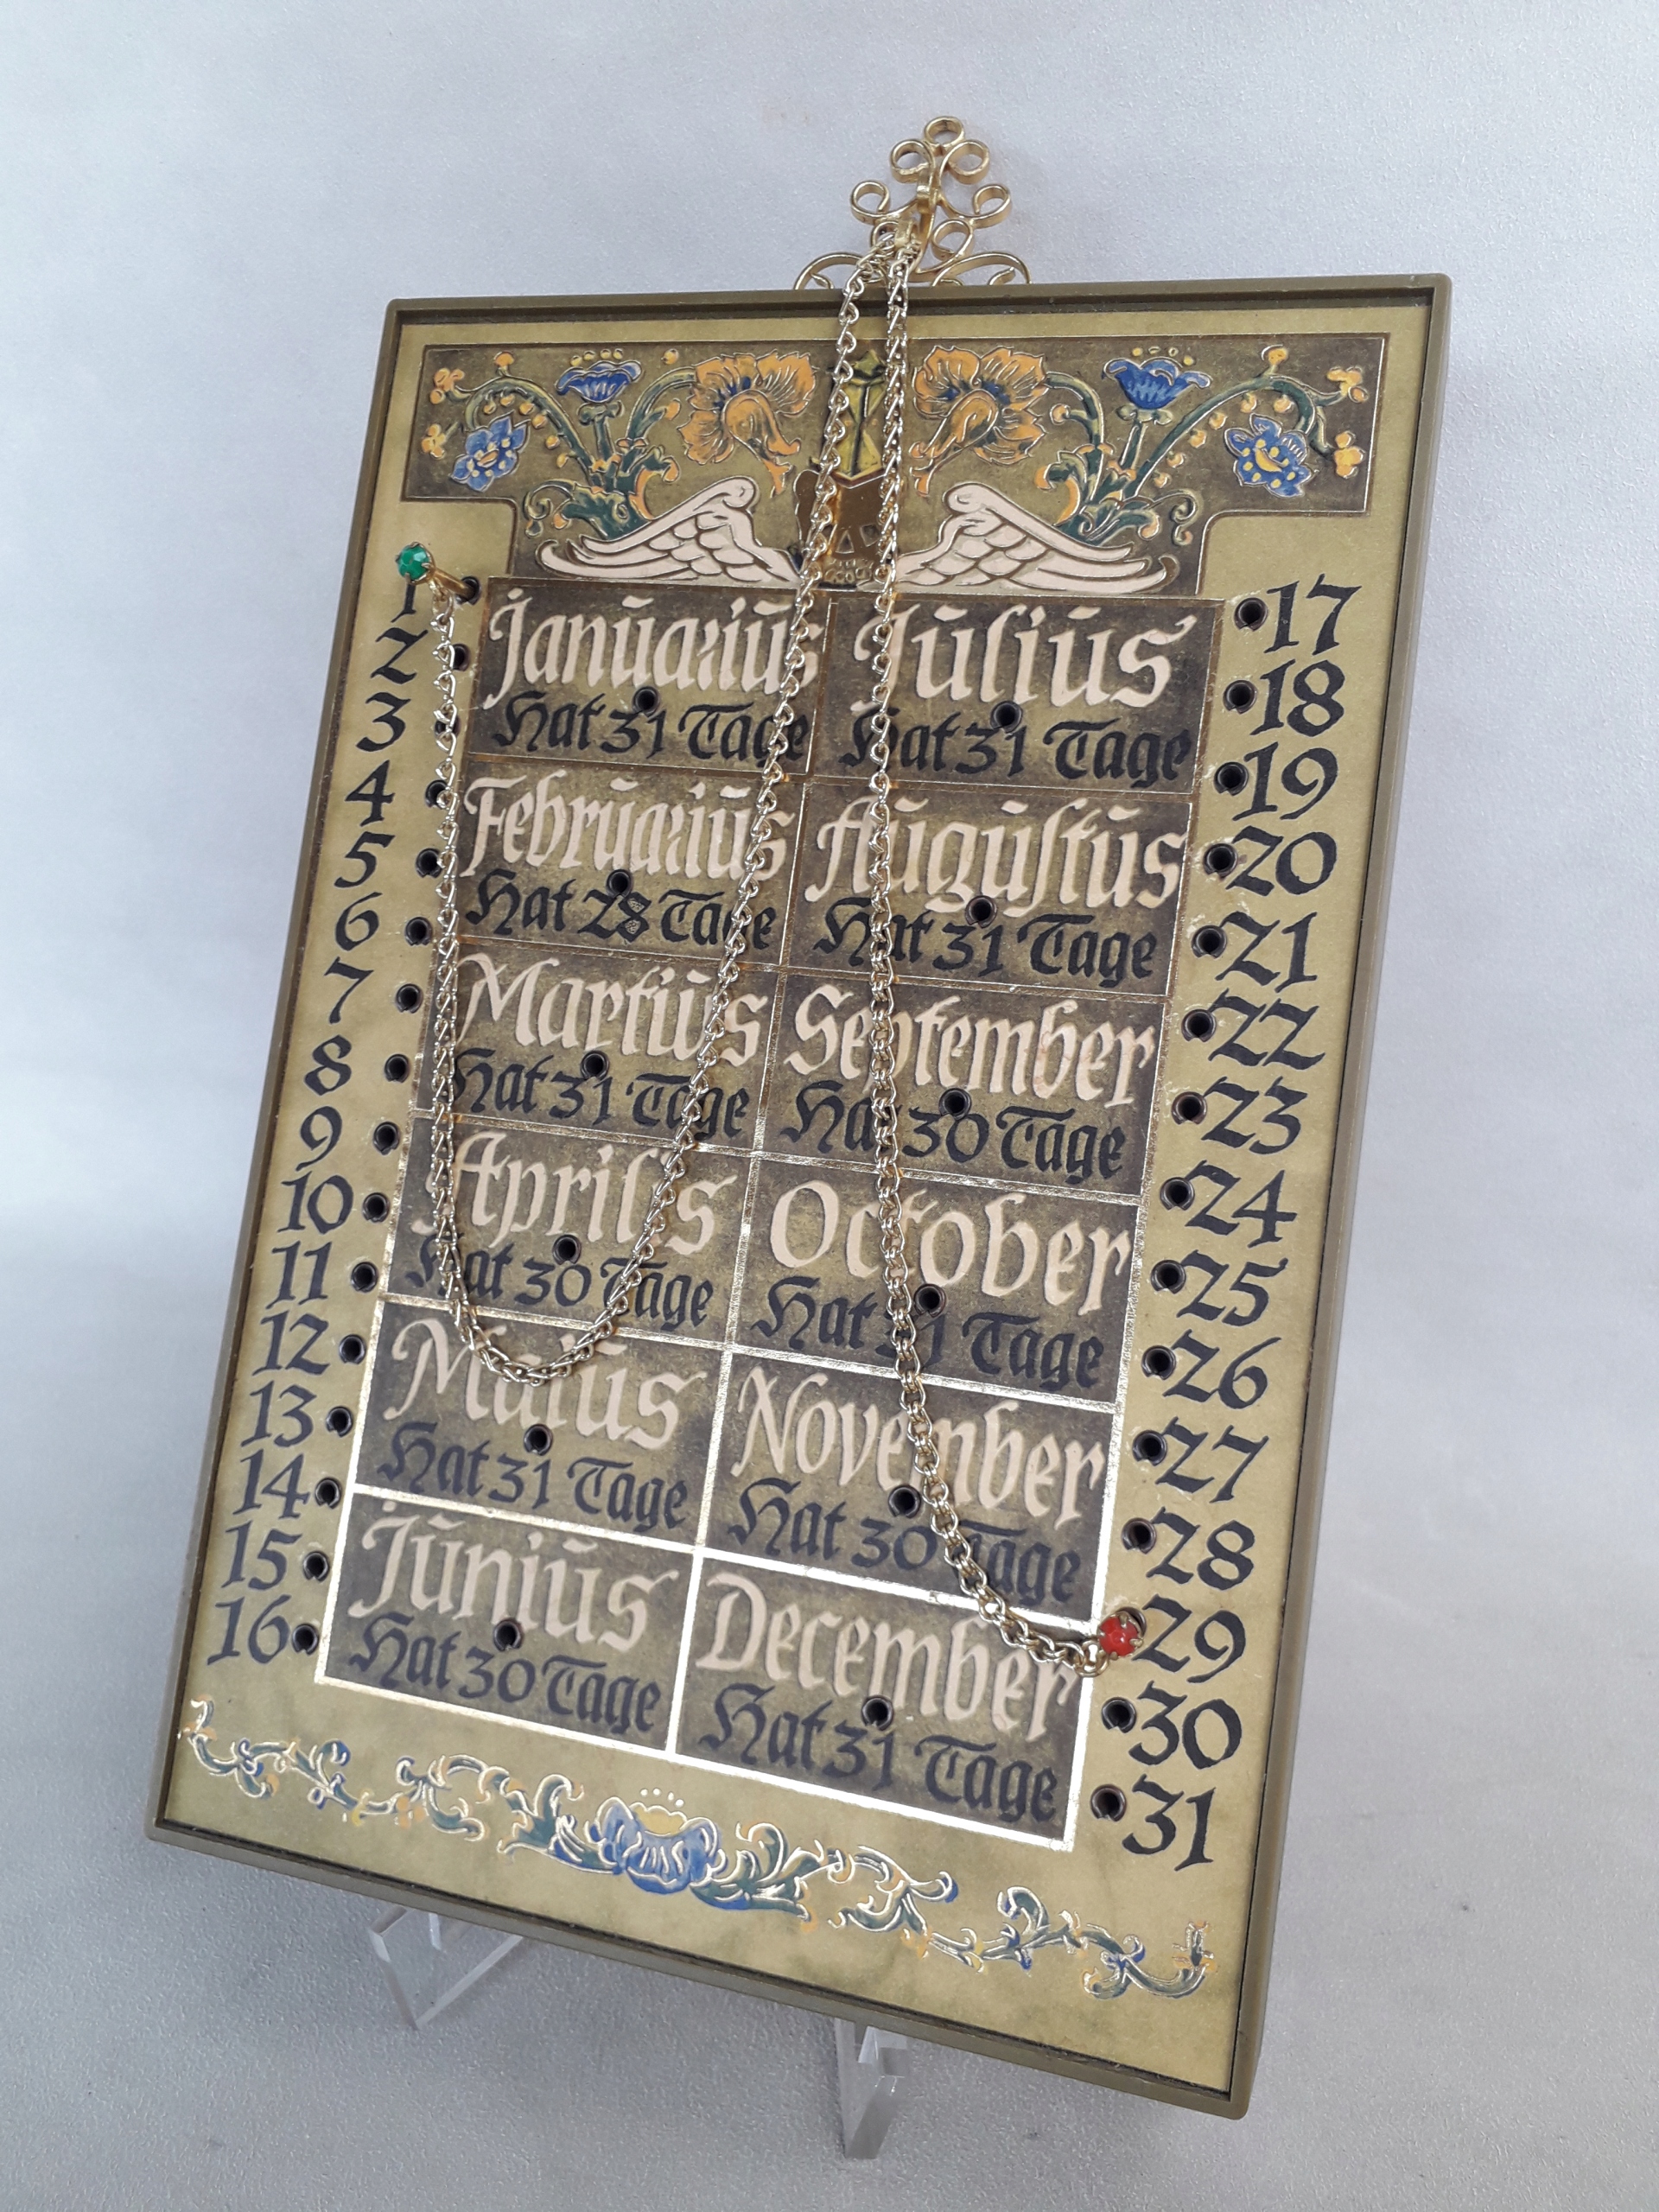 1
2
3
4
5
6
7
8
9
10
11
12
13
14
15
16
Januarius
Hat 31 Tage
Februarius
Hat 28 Tage
Martius
Hat 31 Tage
Aprilis
Hat 30 Tage
Maius
Hat 31 Tage
Junius
Hat 30 Tage
Julius
Hat 31 Tage
Auguſtus
Hat 31 Tage
September
Hat 30 Tage
October
Hat 31 Tage
November
Hat 30 Tage
December
Hat 31 Tage
17
18
19
20
21
22
23
24
25
26
27
28
29
30
31